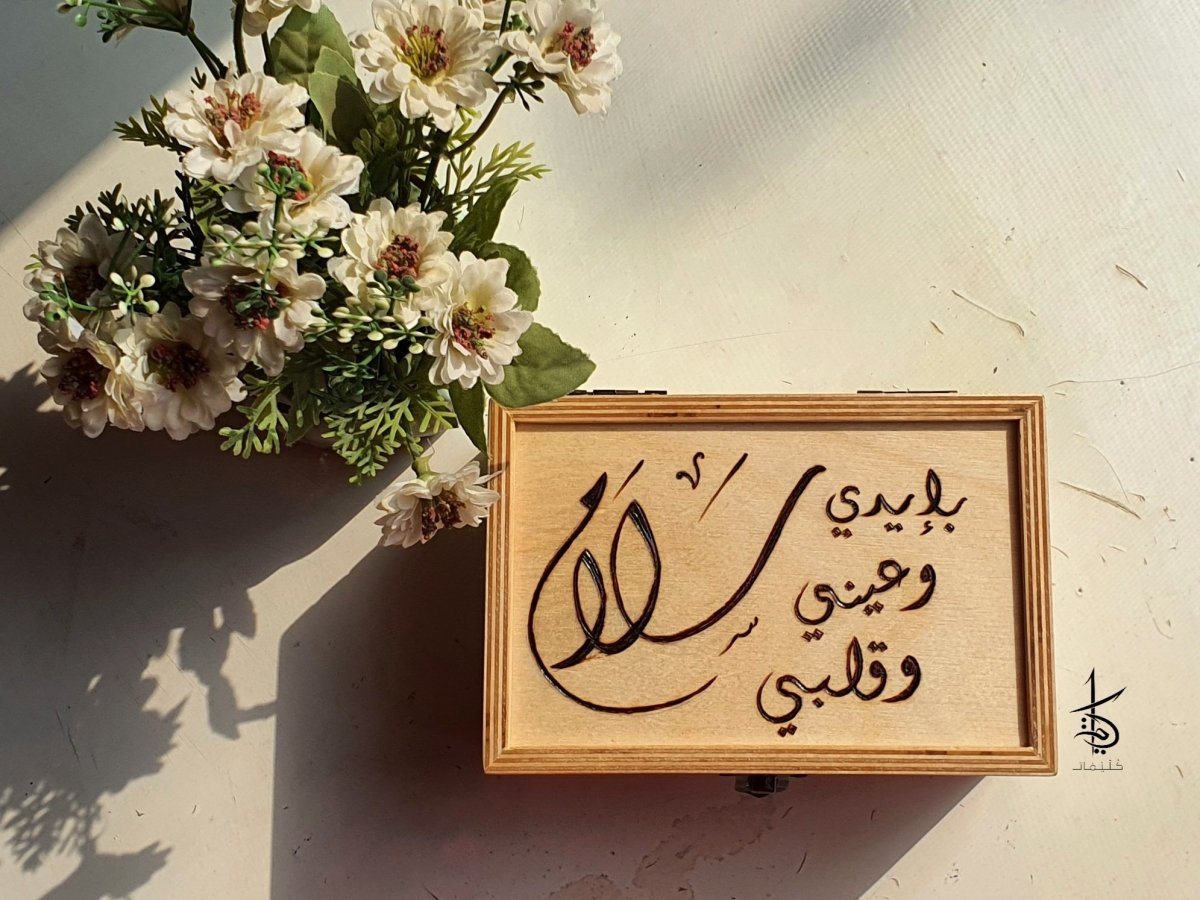 بإيدي
وعيني
وقلبي
سلام
كليمات